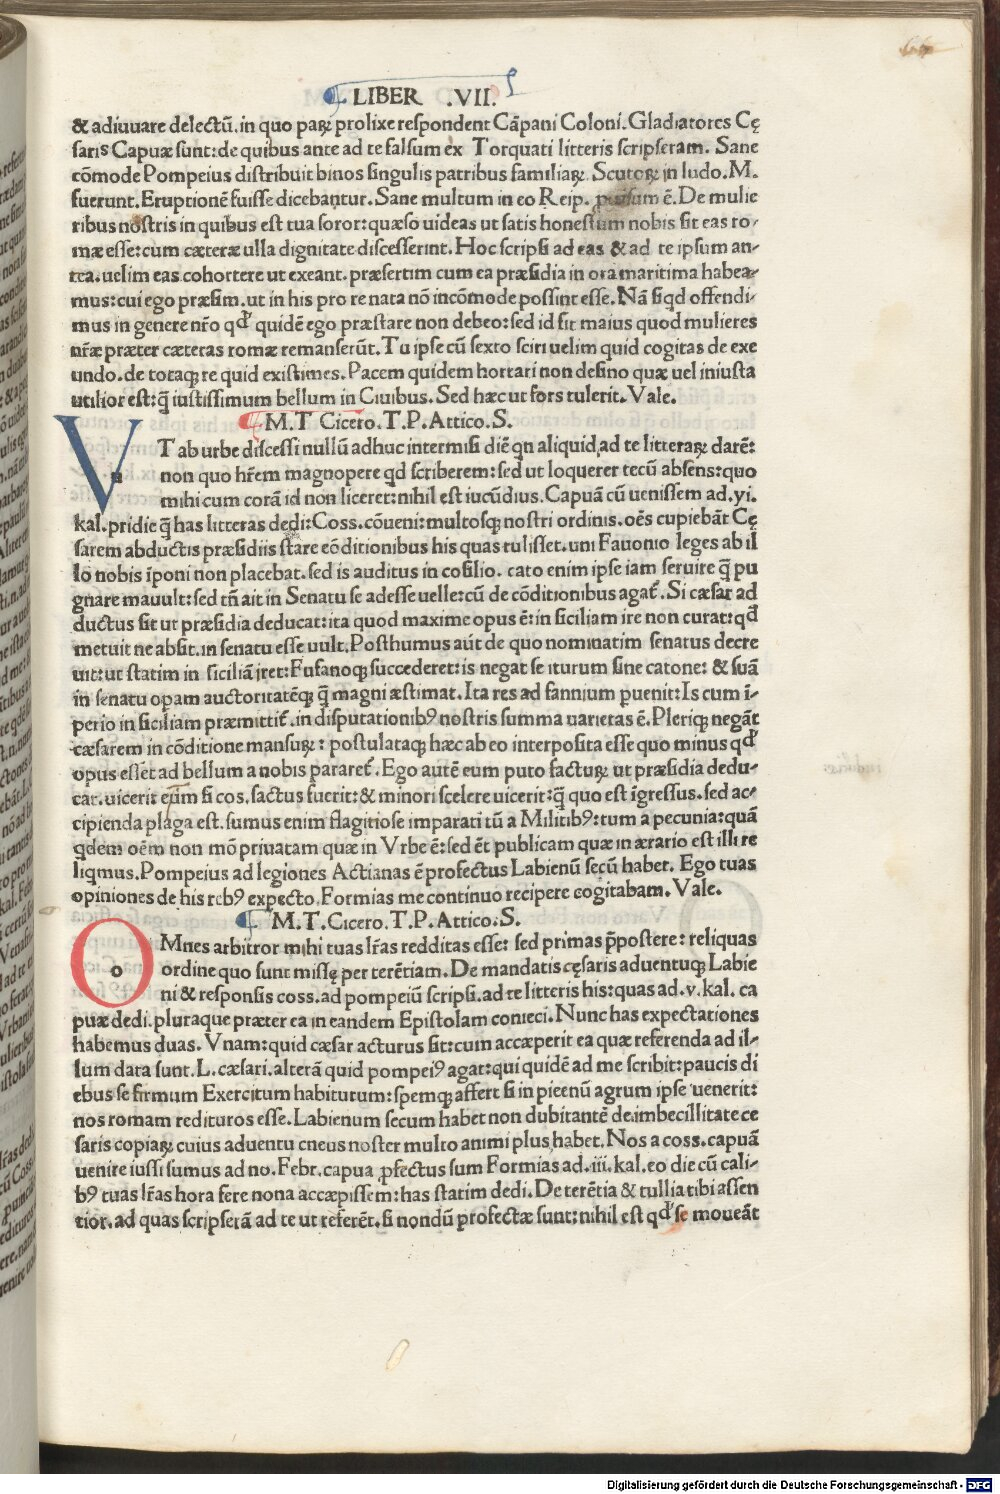 LIBER .VII.
& adiuuare delectū. in quo parꝝ prolixe respondent Cāpani Coloni. Gladiatores Cę
saris Capuæ sunt: de quibus ante ad te falsum ex Torquati litteris scripseram. Sane
cōmode Pompeius distribuit binos singulis patribus familiaꝝ. Scutoꝝ in ludo. M.
fuerunt. Eruptionē fuisse dicebantur. Sane multum in eo Reip. puisum ē. De mulie
ribus nostris in quibus est tua soror: quæso uideas ut satis honestum nobis sit eas ro-
mæ esse: cum cæteræ ulla dignitate discesserint. Hoc scripsi ad eas & ad te ipsum an-
tea. uelim eas cohortere ut exeant. præsertim cum ea præsidia in ora maritima habea-
mus: cui ego præsim. ut in his pro re nata nō incōmode possint esse. Nā siqd offendi-
mus in genere nr̄o qd' quidē ego præstare non debeo: sed id fit maius quod mulieres
nr̄æ præter cæteras romæ remanserūt. Tu ipse cū sexto sciri uelim quid cogitas de exe
undo. de totaqꝫ re quid existimes. Pacem quidem hortari non desino quæ uel iniusta
utilior est: q̄ iustissimum bellum in Ciuibus. Sed hæc ut fors tulerit. Vale.
M.T Cicero. T.P. Attico. S.
V T ab urbe discessi nullū adhuc intermisi diē qn aliquid ad te litteraꝝ darē:
u non quo hr̄em magnopere qd scriberem: sed ut loquerer tecū absens: quo
mihi cum corā id non liceret: nihil est iucūdius. Capuā cū uenissem ad. yi.
kal. pridie q̄ has litteras dedi: Coss. cōueni: multosqꝫ nostri ordinis. oēs cupiebāt Cę
sarem abductis præsidiis stare cōditionibus his quas tulisset. uni Fauonio leges ab il
lo nobis īponi non placebat. sed is auditus in cōsilio. cato enim ipse iam seruire q̄ pu
gnare mauult: sed tn̄ ait in Senatu se adesse uelle: cū de cōditionibus agat'. Si cæsar ad
ductus sit ut præsidia deducat: ita quod maxime opus ē: in siciliam ire non curat: qd'
metuit ne absit. in senatu esse uult. Posthumus aūt de quo nominatim senatus decre
uit: ut statim in siciliā iret: Fufanoqꝫ succederet: is negat se iturum sine catone: & suā
in senatu opam auctoritatēqꝫ q̄ magni æstimat. Ita res ad fannium puenit: Is cum ī-
perio in siciliam præmittit'. in disputationibꝰ nostris summa uarietas ē. Pleriqꝫ negāt
cæsarem in cōditione mansuꝝ: postulataqꝫ hæc ab eo interposita esse quo minus qd'
opus essēt ad bellum a nobis pararet'. Ego autē eum puto factuꝝ ut præsidia dedu-
cat. uicerit eīm si cos. factus fuerit: & minori scelere uicerit: q̄ quo est īgressus. sed ac-
cipienda plaga est. sumus enim flagitiose imparati tū a Militibꝰ: tum a pecunia: quā
qdem oēm non mō priuatam quæ in Vrbe ē: sed ēt publicam quæ in ærario est illi re
liqmus. Pompeius ad legiones Actianas ē profectus Labienū secū habet. Ego tuas
opiniones de his rebꝰ expecto. Formias me continuo recipere cogitabam. Vale.
M.T. Cicero. T.P. Attico. S.
O Mnes arbitror mihi tuas lr̄as redditas esse: sed primas p̄postere: reliquas
o ordine quo sunt missę per terētiam. De mandatis cęsaris aduentuqꝫ Labie
ni & responsis coss. ad pompeiū scripsi. ad te litteris his: quas ad. v. kal. ca
puæ dedi. pluraque præter ea in eandem Epistolam conieci. Nunc has expectationes
habemus duas. Vnam: quid cæsar acturus sit: cum accæperit ea quæ referenda ad il-
lum data sunt. L. cæsari. alterā quid pompeiꝰ agat: qui quidē ad me scribit: paucis di
ebus se firmum Exercitum habiturum: spemqꝫ affert si in picenū agrum ipse uenerit:
nos romam redituros esse. Labienum secum habet non dubitantē de imbecillitate ce
saris copiaꝝ: cuius aduentu cneus noster multo animi plus habet. Nos a coss. capuā
uenire iussi sumus ad no. Febr. capua ꝓfectus sum Formias ad. iii. kal. eo die cū cali-
bꝰ tuas lr̄as hora fere nona accæpissem: has statim dedi. De terētia & tullia tibi assen
tior. ad quas scripserā ad te ut referēt. si nondū profectæ sunt: nihil est qd' se moueāt
Digitalisierung gefördert durch die Deutsche Forschungsgemeinschaft - DFG